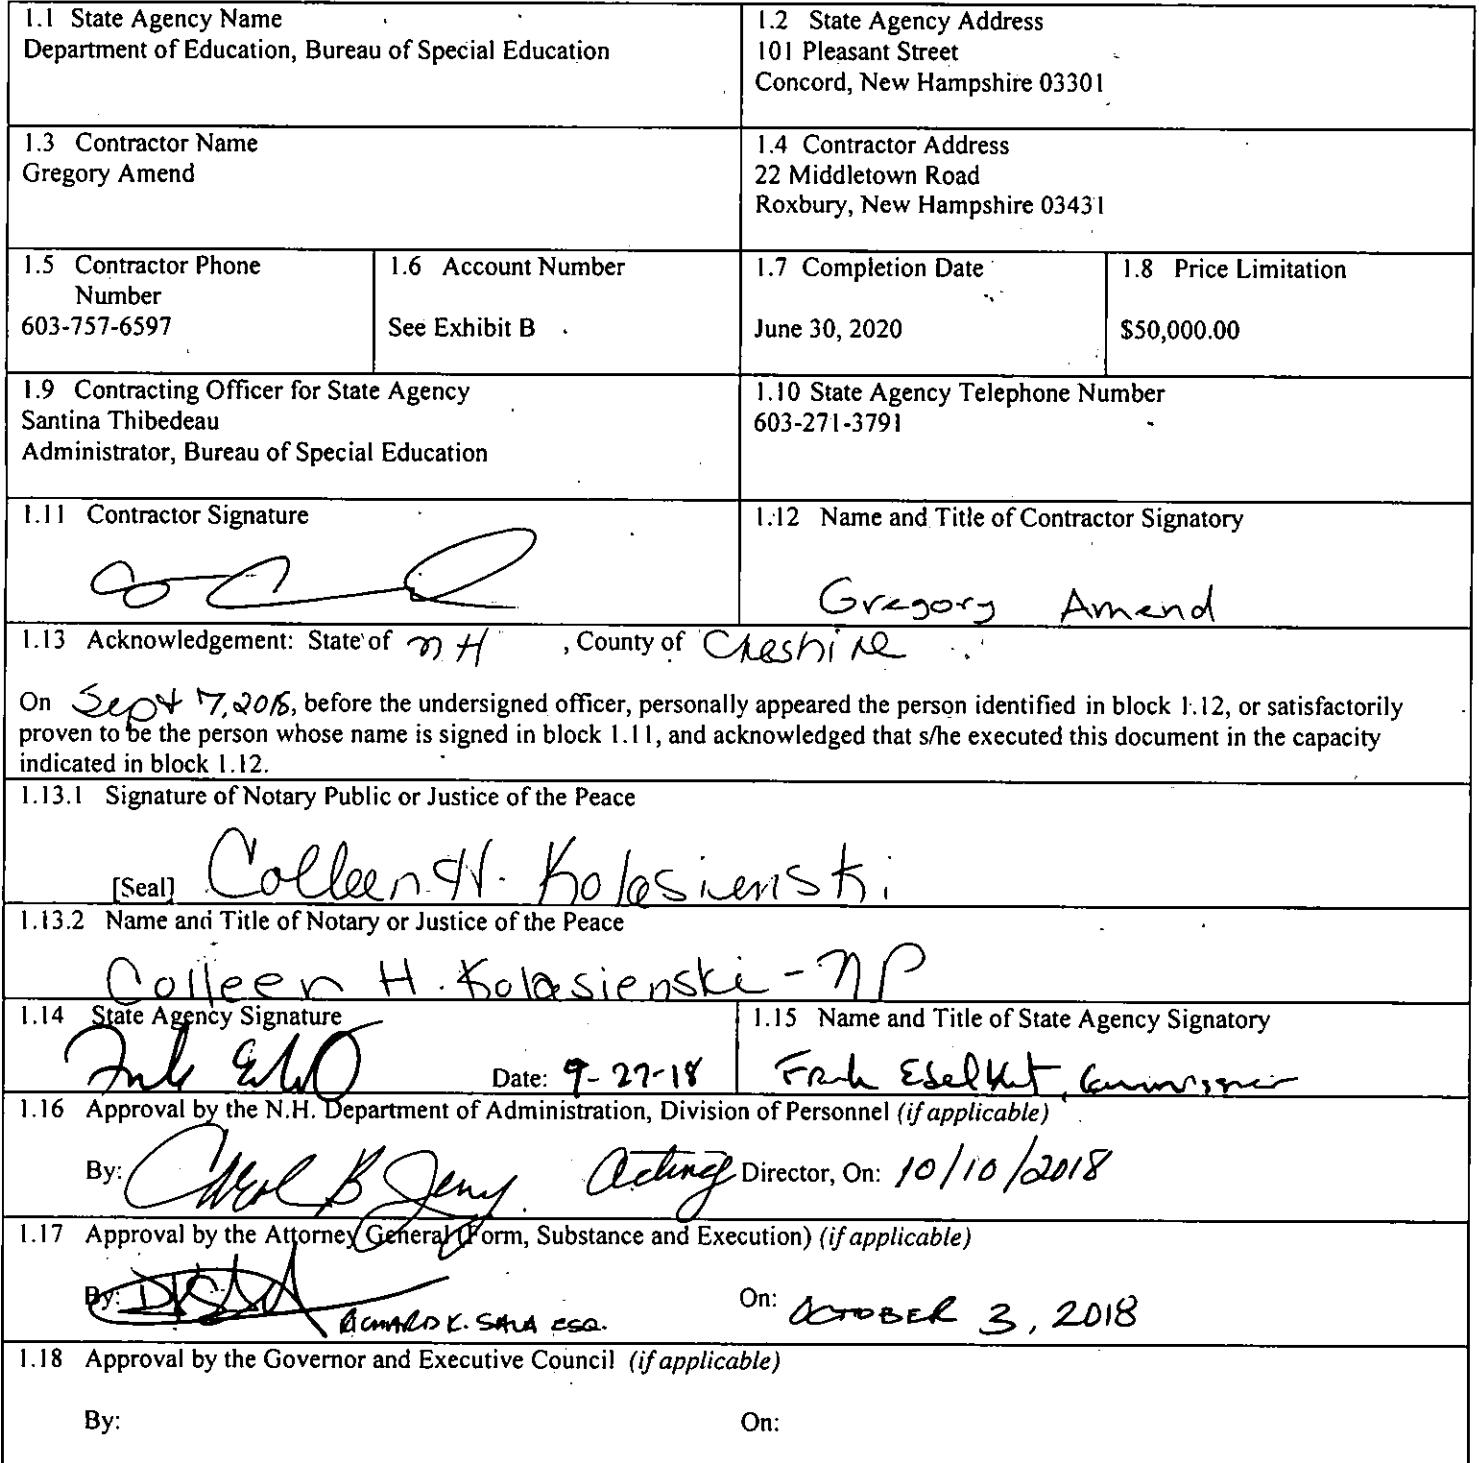 1.1 State Agency Name
Department of Education, Bureau of Special Education
1.2 State Agency Address
101 Pleasant Street
Concord, New Hampshire 03301
1.3 Contractor Name
Gregory Amend
1.4 Contractor Address
22 Middletown Road
Roxbury, New Hampshire 03431
1.5 Contractor Phone
Number
603-757-6597
1.6 Account Number
See Exhibit B
1.7 Completion Date
June 30, 2020
1.8 Price Limitation
$50,000.00
1.9 Contracting Officer for State Agency
Santina Thibedeau
Administrator, Bureau of Special Education
1.10 State Agency Telephone Number
603-271-3791
1.11 Contractor Signature
1.12 Name and Title of Contractor Signatory
Gregory Amend
1.13 Acknowledgement: State of NH , County of Cheshire
On Sept 7, 2018, before the undersigned officer, personally appeared the person identified in block 1.12, or satisfactorily
proven to be the person whose name is signed in block 1.11, and acknowledged that s/he executed this document in the capacity
indicated in block 1.12.
1.13.1 Signature of Notary Public or Justice of the Peace
[Seal] Colleen H. Kolasienski
1.13.2 Name and Title of Notary or Justice of the Peace
Colleen H. Kolasienski - NP
1.14 State Agency Signature
Date: 9-27-18
1.15 Name and Title of State Agency Signatory
Frank Edelblut, Commissioner
1.16 Approval by the N.H. Department of Administration, Division of Personnel (if applicable)
By: Acting Director, On: 10/10/2018
1.17 Approval by the Attorney General (Form, Substance and Execution) (if applicable)
By: RICHARD K. SALA ESQ. On: OCTOBER 3, 2018
1.18 Approval by the Governor and Executive Council (if applicable)
By: On: